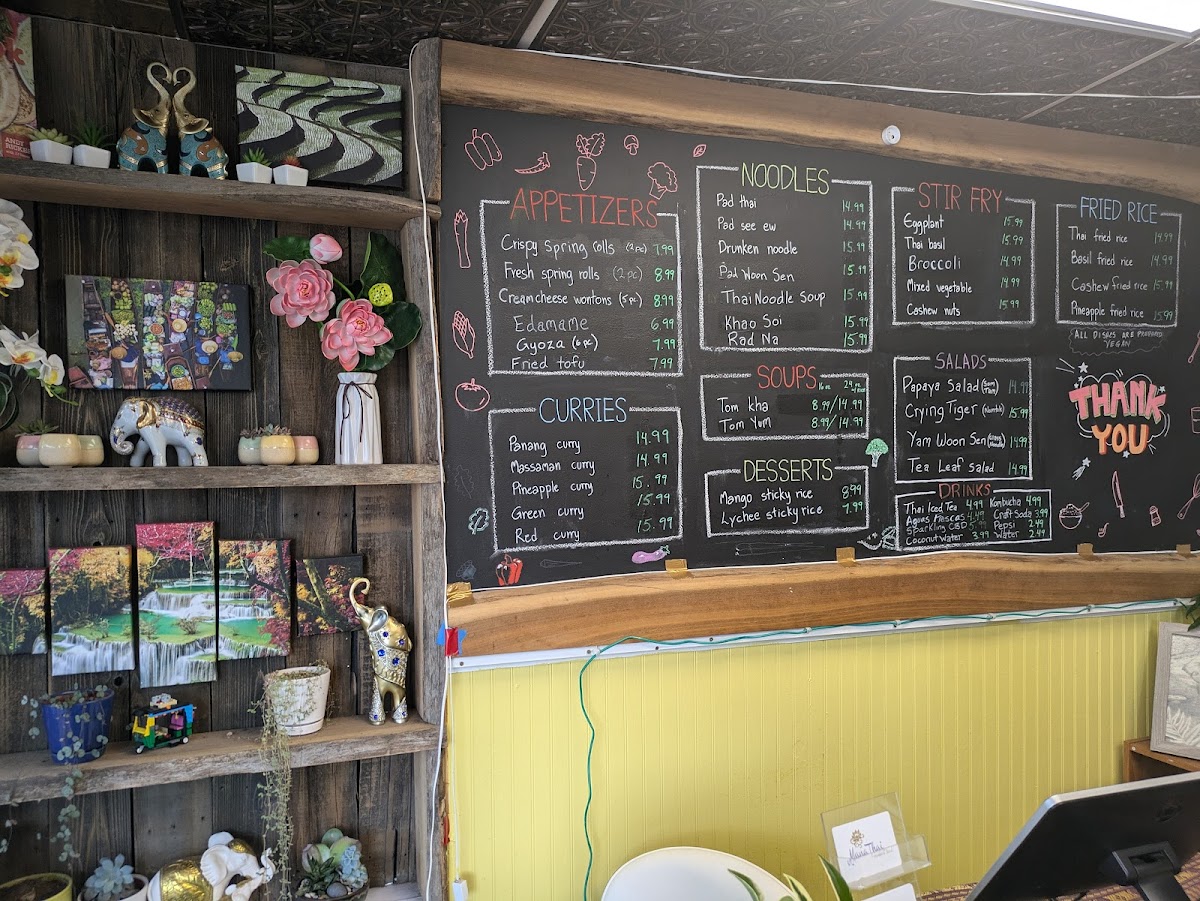 ANDY
APPETIZERS
Crispy Spring rolls (2pc) 7.99
Fresh spring rolls (2pc) 8.99
Creamcheese wontons (5pc) 8.99
Edamame 6.99
Gyoza (6pc) 7.99
Fried tofu 7.99
CURRIES
Panang curry 14.99
Massaman curry 14.99
Pineapple curry 15.99
Green curry 15.99
Red curry 15.99
NOODLES
Pad thai 14.99
Pad see ew 14.99
Drunken noodle 15.99
Pad Woon Sen 15.99
Thai Noodle Soup 15.99
Khao Soi 15.99
Rad Na 15.99
SOUPS 16oz 24oz
Tom kha 8.99/14.99
Tom Yum 8.99/14.99
DESSERTS
Mango sticky rice 8.99
Lychee sticky rice 7.99
STIR FRY
Eggplant 15.99
Thai basil 15.99
Broccoli 14.99
Mixed vegetable 14.99
Cashew nuts 15.99
SALADS
Papaya Salad (Som Tum) 14.99
Crying Tiger (Numtok) 15.99
Yam Woon Sen 14.99
Tea Leaf Salad 14.99
DRINKS
Thai Iced Tea 4.99 Kombucha 4.99
Aguas Frescas 4.49 Craft Soda 3.99
Sparkling CBD 5.99 Pepsi 2.49
Coconut Water 3.99 Water 2.49
FRIED RICE
Thai fried rice 14.99
Basil fried rice 14.99
Cashew fried rice 15.99
Pineapple fried rice 15.99
ALL DISHES ARE PREPARED
VEGAN
THANK
YOU
Thai